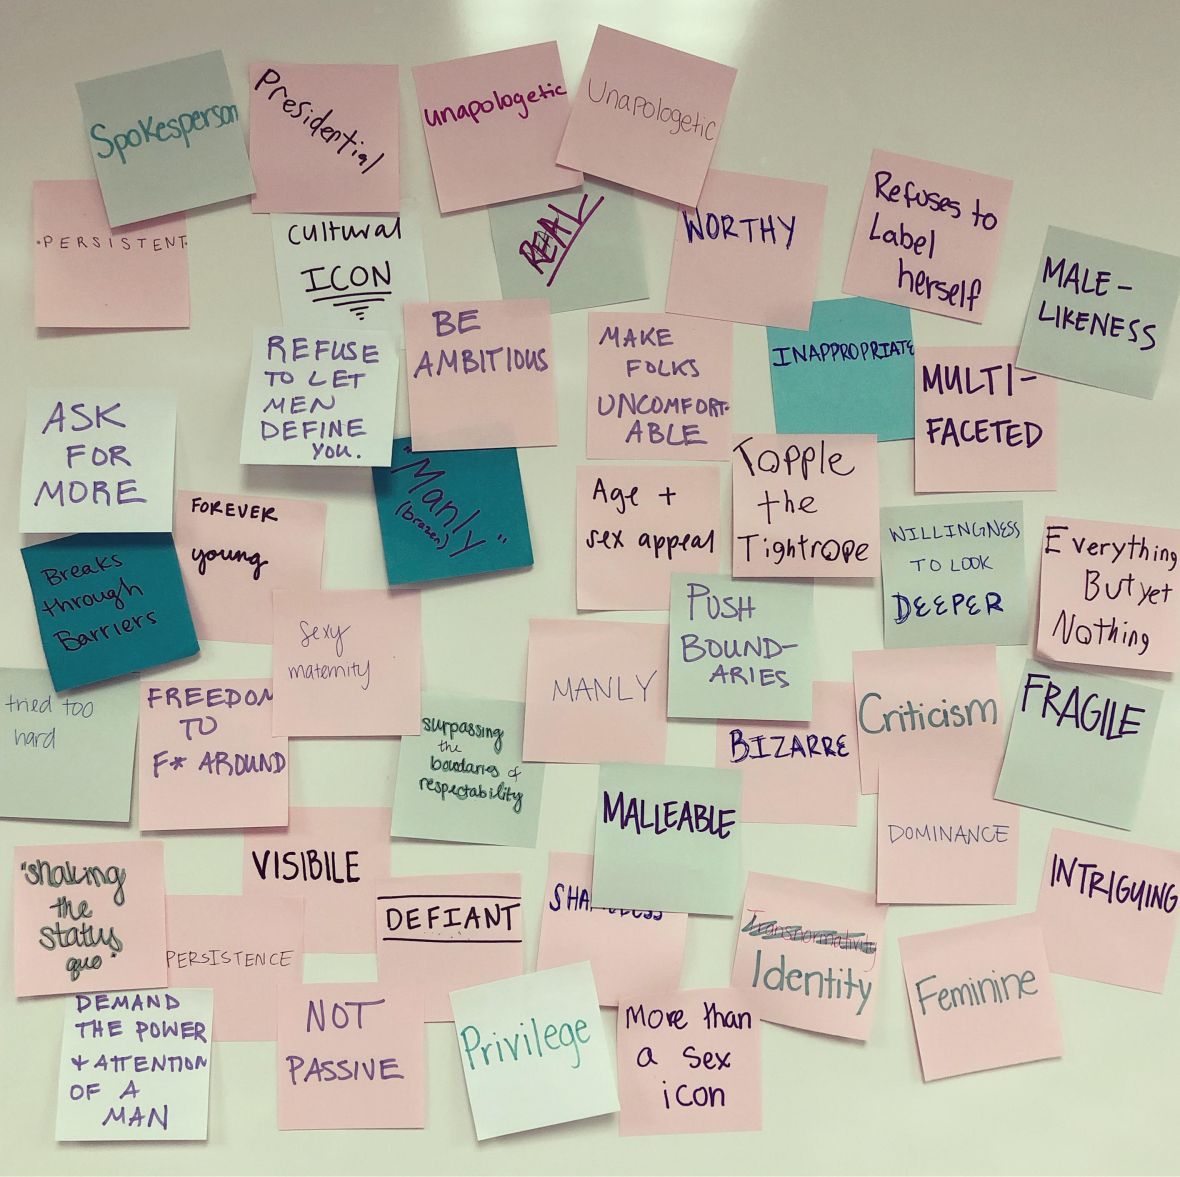 Spokesperson
Presidential
unapologetic
Unapologetic
·PERSISTENT·
cultural
ICON
REAL
WORTHY
Refuses to
Label
herself
MALE-
LIKENESS
REFUSE
TO LET
MEN
DEFINE
YOU.
BE
AMBITIOUS
MAKE
FOLKS
UNCOMFORT-
ABLE
INAPPROPRIATE
MULTI-
FACETED
ASK
FOR
MORE
FOREVER
young
"Manly"
(brazen)
Age +
sex appeal
Topple
the
Tightrope
WILLINGNESS
TO LOOK
DEEPER
Everything
But yet
Nothing
Breaks
through
Barriers
sexy
maternity
MANLY
PUSH
BOUND-
ARIES
Criticism
FRAGILE
tried too
hard
FREEDOM
TO
F* AROUND
surpassing
the
boundaries of
respectability
BIZARRE
MALLEABLE
DOMINANCE
INTRIGUING
"shaking
the
status
quo"
VISIBILE
PERSISTENCE
DEFIANT
Transnormativity
Identity
Feminine
DEMAND
THE POWER
+ ATTENTION
OF A
MAN
NOT
PASSIVE
Privilege
More than
a sex
icon